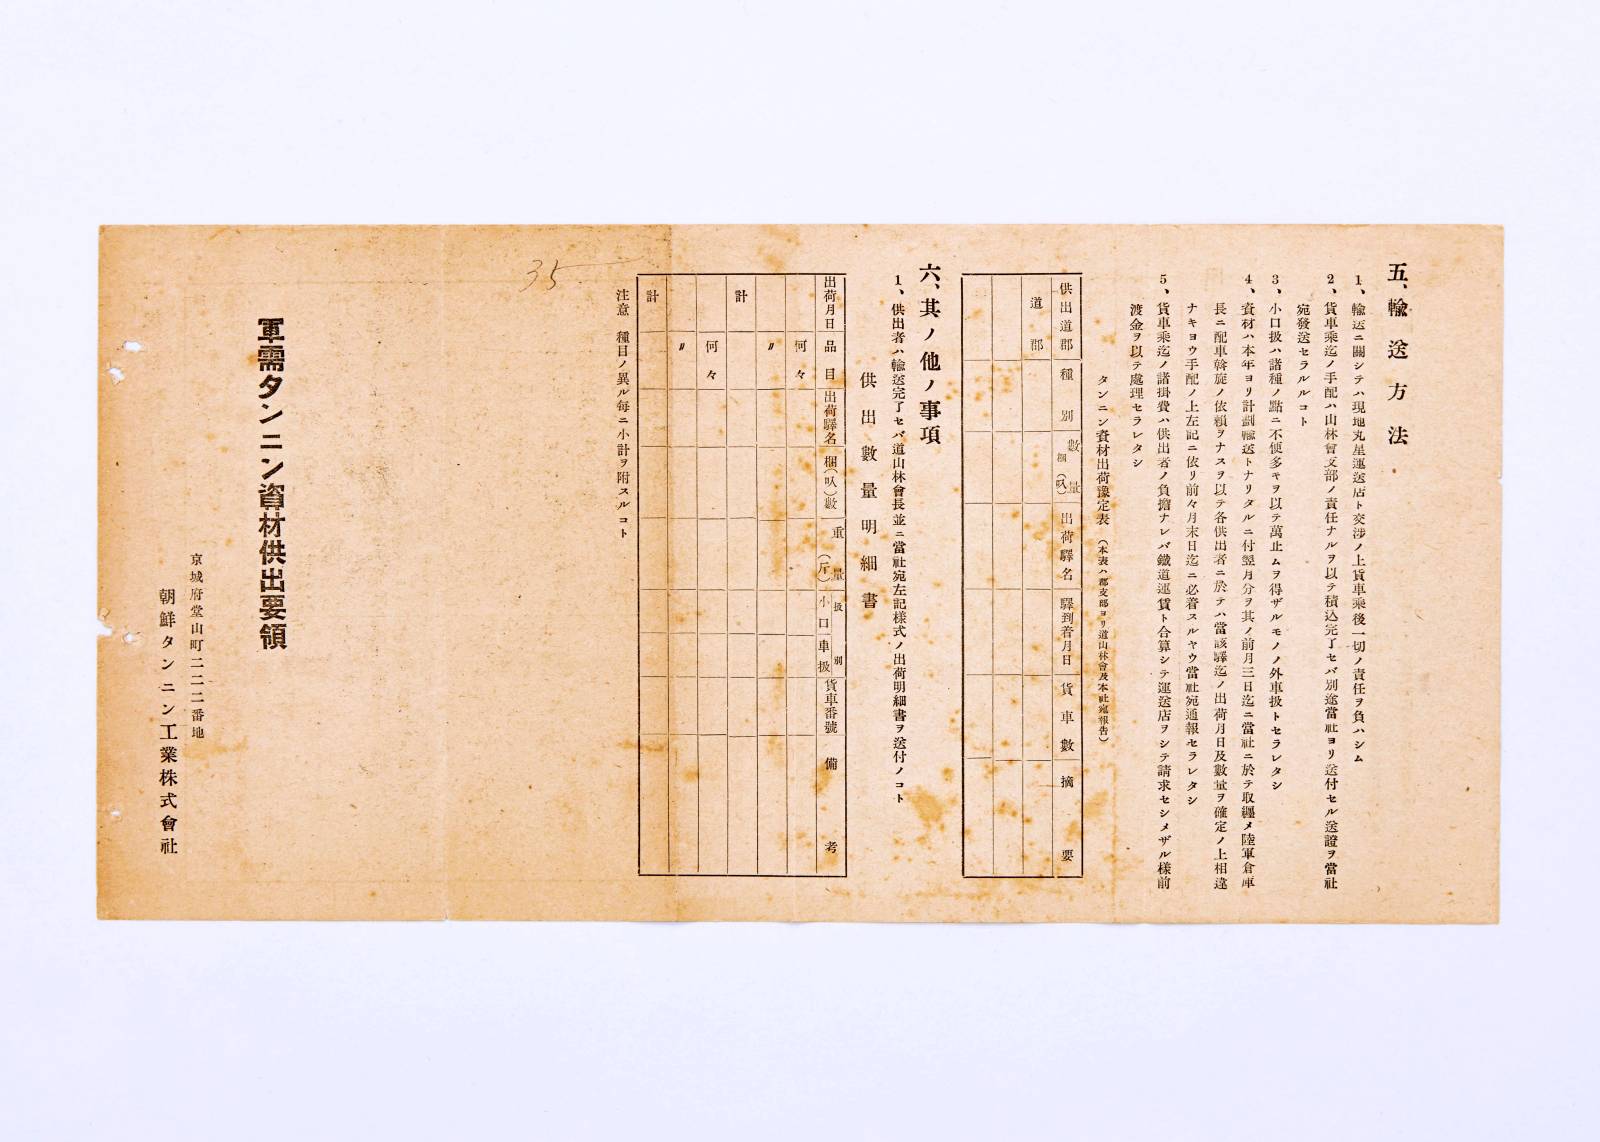 五、輸送方法
1、輸送ニ關シテハ現地丸星運送店ト交渉ノ上貨車乘後一切ノ責任ヲ負ハシム
2、貨車乘迄ノ手配ハ山林會支部ノ責任ナルヲ以テ積込完了セバ別途當社ヨリ送付セル送證ヲ當社
宛發送セラルルコト
3、小口扱ハ諸種ノ點ニ不便多キヲ以テ萬止ムヲ得ザルモノノ外車扱トセラレタシ
4、資材ハ本年ヨリ計劃輸送トナリタルニ付翌月分ヲ其ノ前月三日迄ニ當社ニ於テ取纒メ陸軍倉庫
長ニ配車斡旋ノ依賴ヲナスヲ以テ各供出者ニ於テハ當該驛迄ノ出荷月日及數量ヲ確定ノ上相違
ナキヨウ手配ノ上左記ニ依リ前々月末日迄ニ必着スルヤウ當社宛通報セラレタシ
5、貨車乘迄ノ諸掛費ハ供出者ノ負擔ナレバ鐵道運賃ト合算シテ運送店ヲシテ請求セシメザル樣前
渡金ヲ以テ處理セラレタシ
タンニン資材出荷豫定表(本表ハ郡支部ヨリ道山林會及本社宛報告)
供出道郡 種別 數量 梱(叺) 出荷驛名 驛到着月日 貨車數 摘要
道 郡
六、其ノ他ノ事項
1、供出者ハ輸送完了セバ道山林會長並ニ當社宛左記樣式ノ出荷明細書ヲ送付ノコト
供出數量明細書
出荷月日 品目 出荷驛名 梱(叺)數 重量(斤) 扱別 小口 車扱 貨車番號 備考
何々
〃
計
何々
〃
計
注意 種目ノ異ル每ニ小計ヲ附スルコト
35
軍需タンニン資材供出要領
京城府堂山町二二二番地
朝鮮タンニン工業株式會社